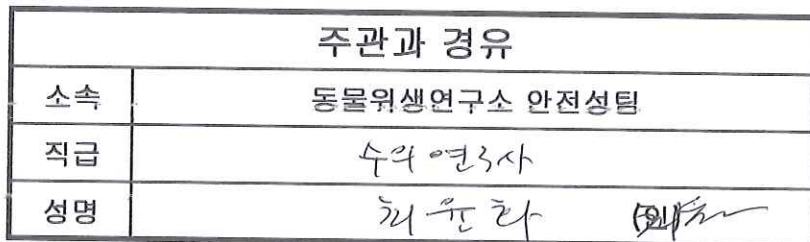 주관과 경유
소속 동물위생연구소 안전성팀
직급 수의연구사
성명 최윤화 (인)